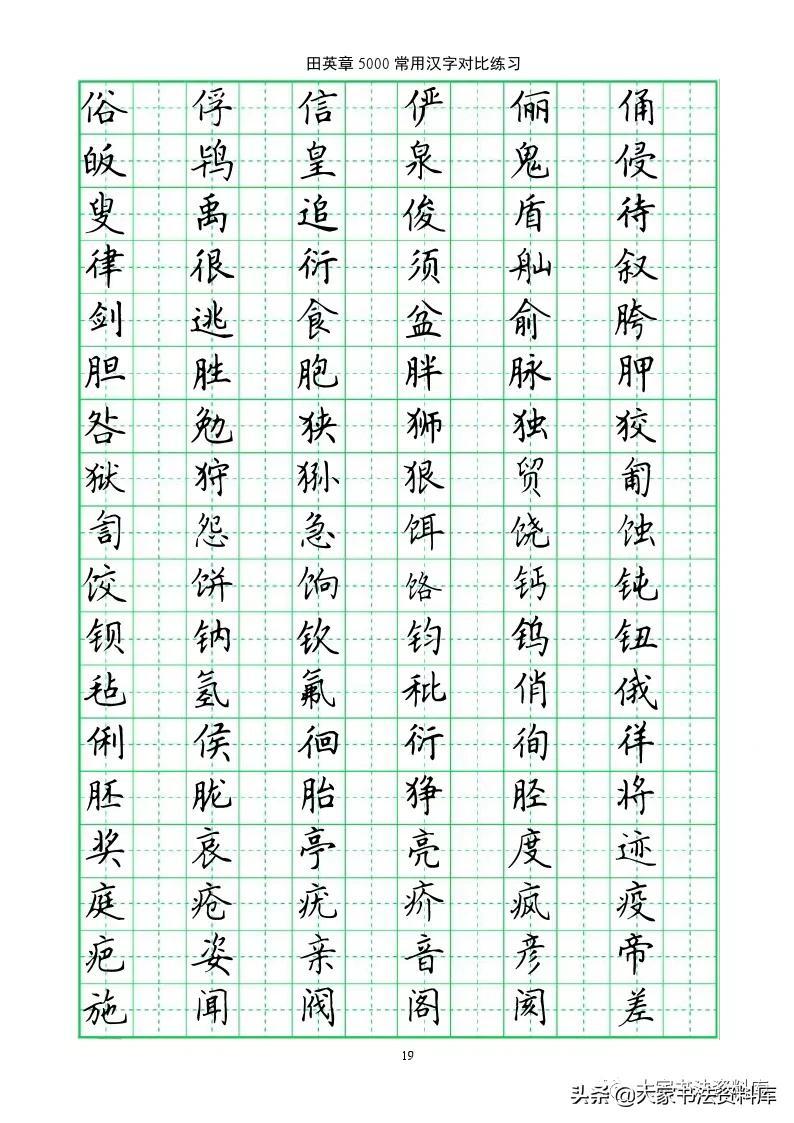 田英章5000常用汉字对比练习
俗 俘 信 俨 俪 俑
皈 鸨 皇 泉 鬼 侵
叟 禹 追 俊 盾 待
律 很 衍 须 舢 叙
剑 逃 食 盆 俞 胯
胆 胜 胞 胖 脉 胛
昝 勉 狭 狮 独 狡
狱 狩 狲 狠 贸 匍
訇 怨 急 饵 饶 蚀
饺 饼 饷 饹 钙 钝
钡 钠 钦 钧 钨 钮
毡 氢 氟 秕 俏 俄
俐 侯 徊 衍 徇 徉
胚 胧 胎 狰 胫 将
奖 哀 亭 亮 度 迹
庭 疮 疣 疥 疯 疫
疤 姿 亲 音 彦 帝
施 闻 阀 阁 阂 差
19
头条@大家书法资料库